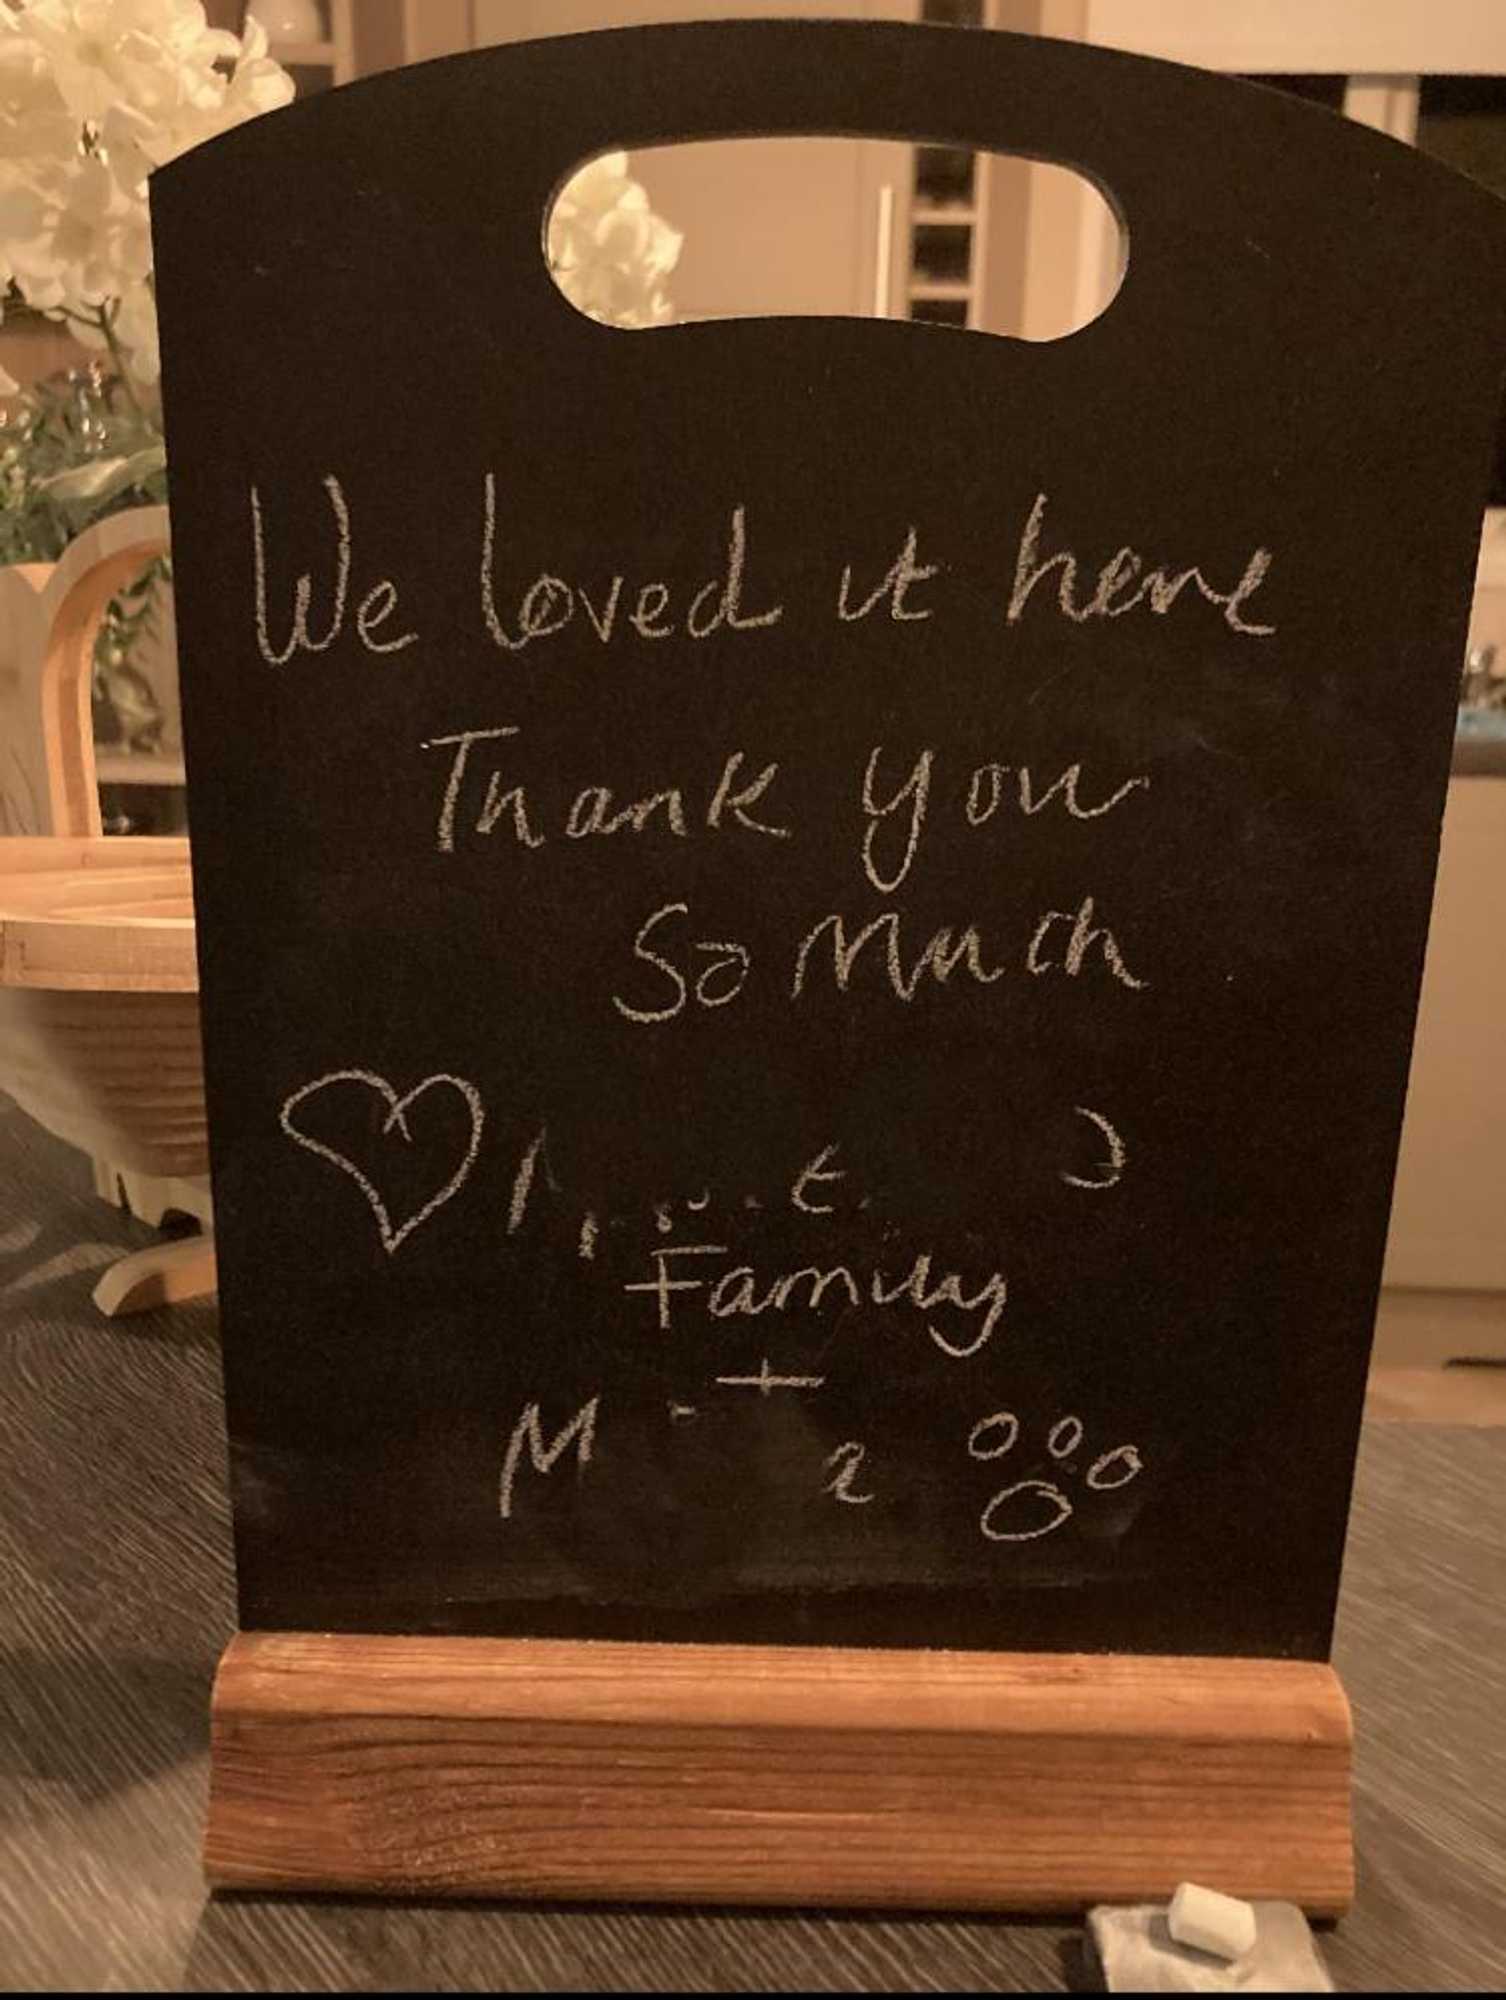 We loved it here
Thank you
So much
Family
+